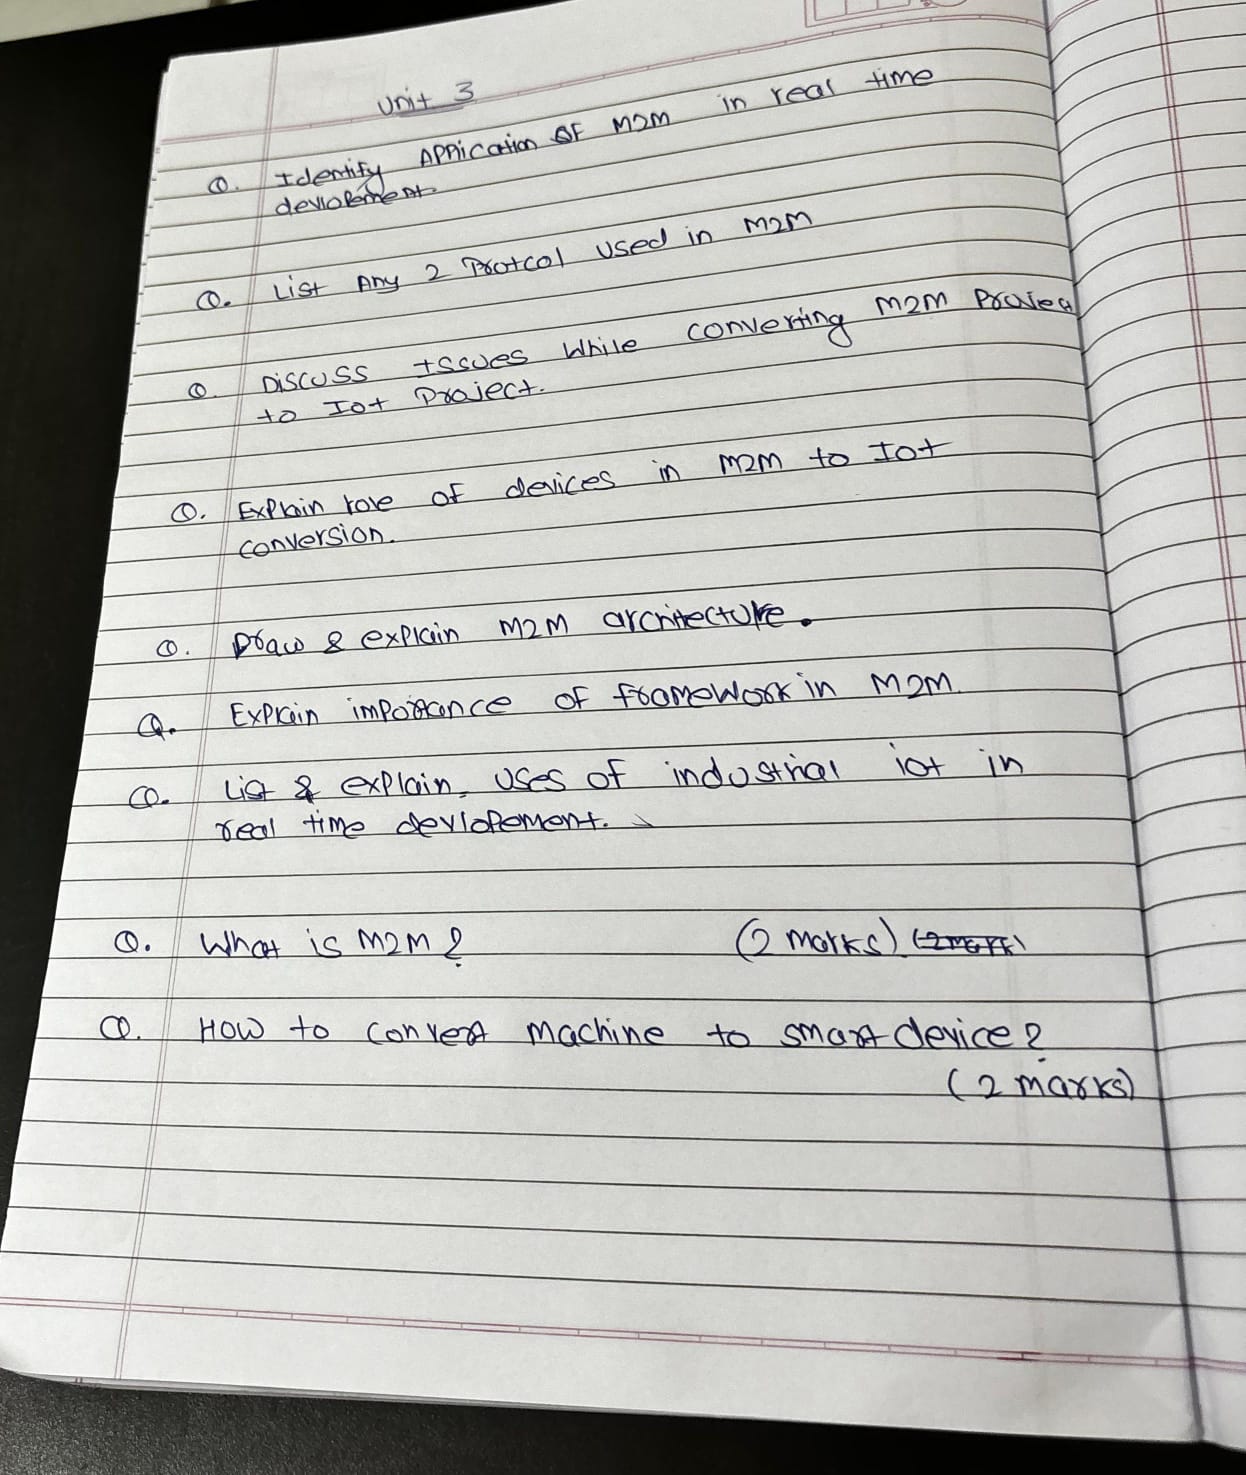 Unit 3
Q. Identify Application OF M2M in real time
devlopement
Q. List Any 2 Protcol used in M2M
Q. Discuss Issues While converting M2M Project
to Iot Project.
Q. Explain role of devices in M2M to Iot
conversion.
Q. Draw & explain M2M architecture.
Q. Explain importance of framework in M2M.
Q. List & explain uses of industrial iot in
real time devlopement.
Q. What is M2M? (2 marks) (2 mark)
Q. How to convert machine to smart device?
(2 marks)